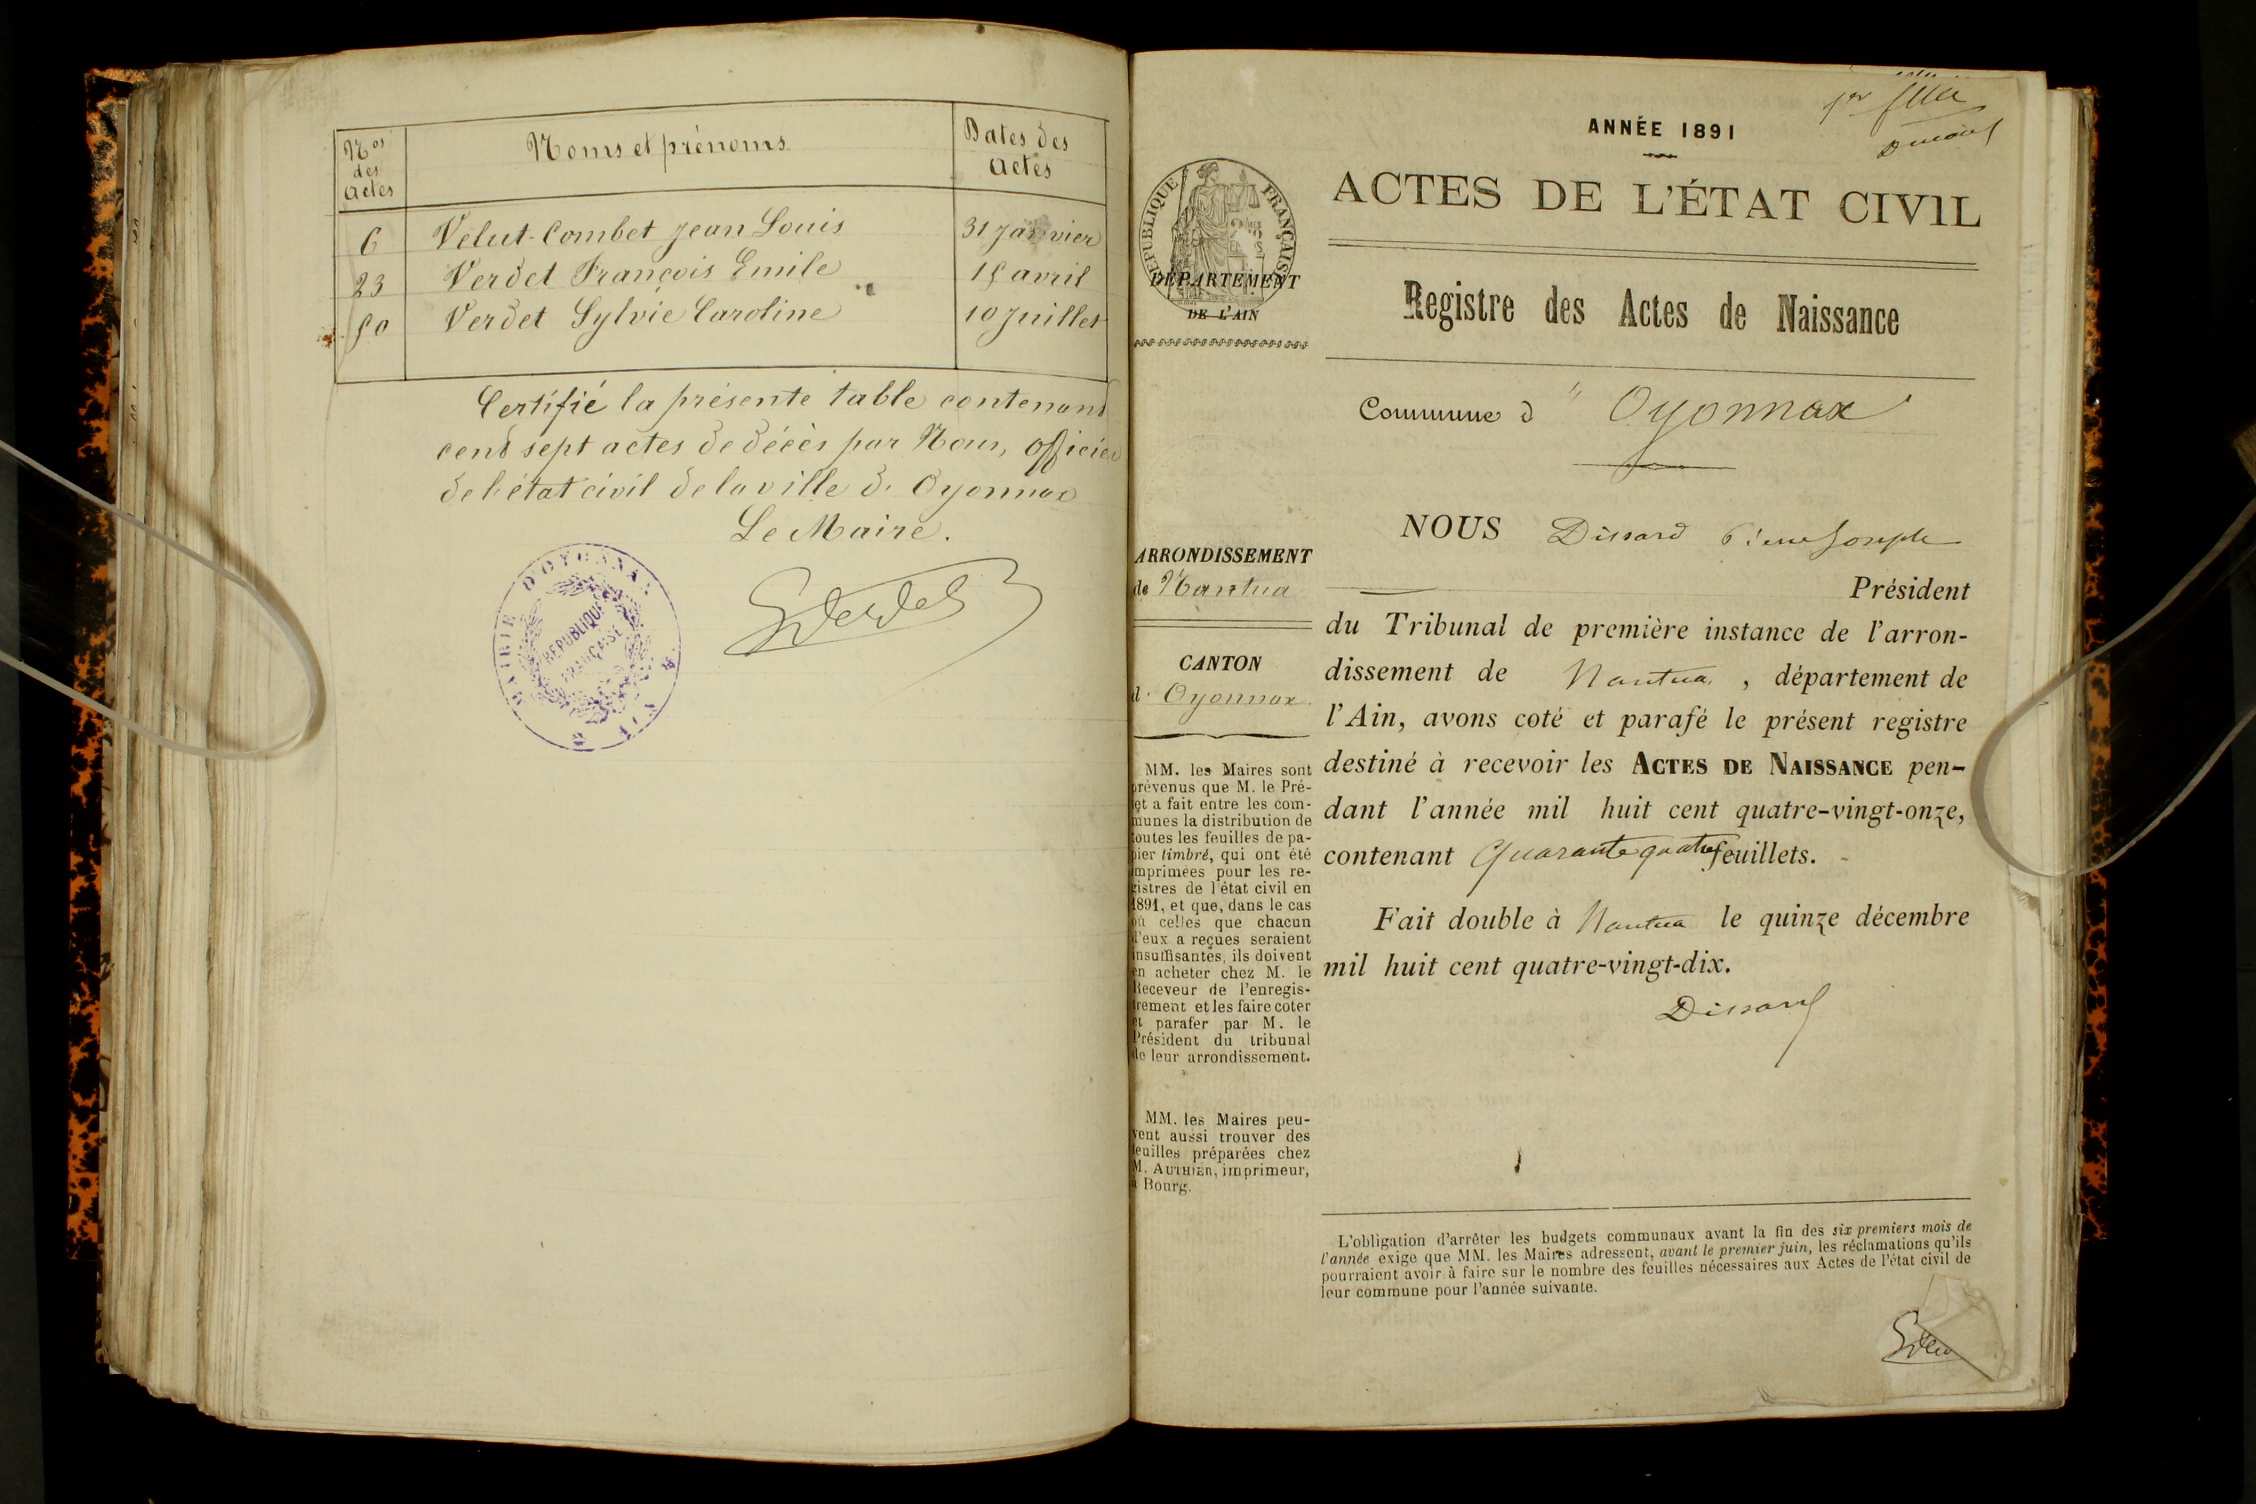 Nos des Actes
Noms et prénoms
Dates des Actes
6 Velut-Combet Jean Louis 31 Janvier
23 Verdet François Emile 15 avril
50 Verdet Sylvie Caroline 10 Juillet
Certifié la présente table contenant
cent sept actes de décès par Nous, officier
de l'état civil de la ville d'Oyonnax
Le Maire.
MAIRIE D'OYONNAX
RÉPUBLIQUE
FRANÇAISE
AIN
GVerdet
1er
Dissard
ANNÉE 1891
ACTES DE L'ÉTAT CIVIL
RÉPUBLIQUE FRANÇAISE
DÉPARTEMENT
DE L'AIN
Registre des Actes de Naissance
Commune d' Oyonnax
NOUS Dissard Pierre Joseph
Président
du Tribunal de première instance de l'arron-
dissement de Nantua, département de
l'Ain, avons coté et parafé le présent registre
destiné à recevoir les ACTES DE NAISSANCE pen-
dant l'année mil huit cent quatre-vingt-onze,
contenant Quarante quatre feuillets.
Fait double à Nantua le quinze décembre
mil huit cent quatre-vingt-dix.
Dissard
ARRONDISSEMENT
de Nantua
CANTON
d'Oyonnax.
MM. les Maires sont
prévenus que M. le Pré-
fet a fait entre les com-
munes la distribution de
toutes les feuilles de pa-
pier timbré, qui ont été
imprimées pour les re-
gistres de l'état civil en
1891, et que, dans le cas
où celles que chacun
d'eux a reçues seraient
insuffisantes, ils doivent
en acheter chez M. le
Receveur de l'enregis-
trement et les faire coter
et parafer par M. le
Président du tribunal
de leur arrondissement.
MM. les Maires peu-
vent aussi trouver des
feuilles préparées chez
M. AUTHIER, imprimeur,
à Bourg.
L'obligation d'arrêter les budgets communaux avant la fin des six premiers mois de
l'année exige que MM. les Maires adressent, avant le premier juin, les réclamations qu'ils
pourraient avoir à faire sur le nombre des feuilles nécessaires aux Actes de l'état civil de
leur commune pour l'année suivante.